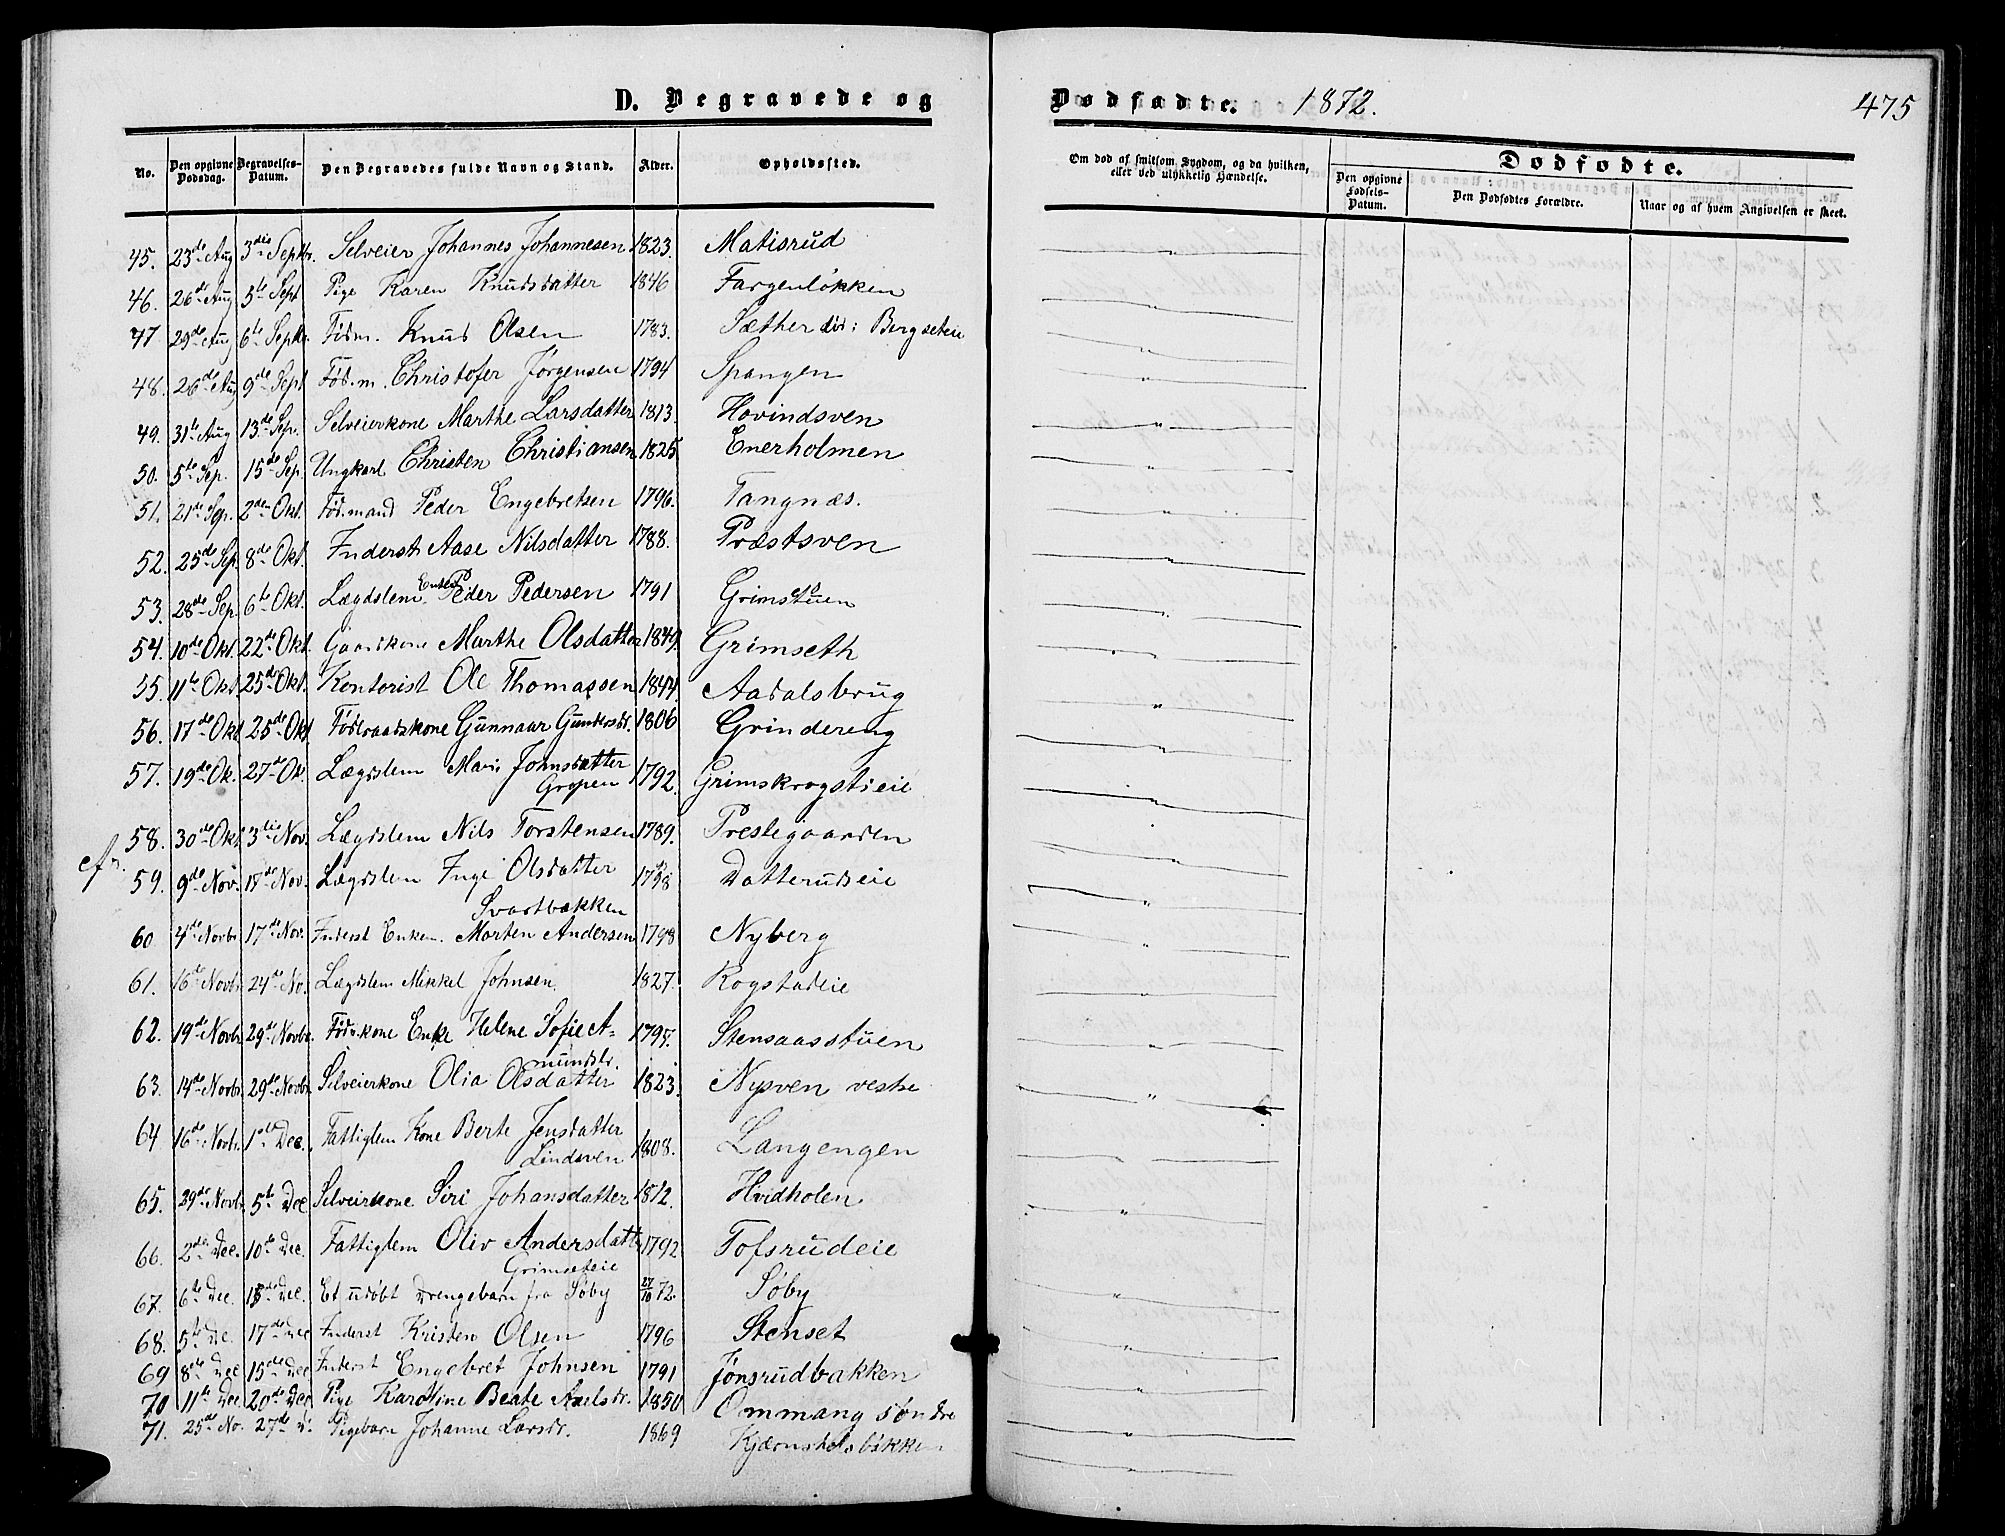 D. Begravede og
Dødfødte. 1872. 475
No. Den opgivne Dødsdag. Begravelses-Datum. Den Begravedes fulde Navn og Stand. Alder. Opholdssted.
Om død af smitsom Sygdom, og da hvilken, eller ved ulykkelig Hændelse. Dødfødte. Den opgivne Fødsels-Datum. Den Dødfødtes Forældre. Naar og af hvem Angivelsen er skeet.
45. 23de Aug 3die Septbr. Selveier Johannes Johannesen 1823. Matisrud
46. 26de Aug 5te Sept Pige Karen Knudsdatter 1846 Fargenløkken
47 29de Aug 6te Septbr Fødm. Knud Olsen 1783. Sæther Bergseteie
48. 26de Aug 9de Sept Fød.m. Christofer Jørgensen 1794 Spangen
49. 31te Aug 13de Sep. Selveierkone Marthe Larsdatter 1813. Hovindsven
50. 5te Sep. 15de Sep. Ungkarl Christen Christiansen 1825 Enerholmen
51. 21de Sep. 2den Okt. Fød.mand Peder Engebretsen 1796. Tangnæs.
52. 25de Sep. 8de Okt. Inderst Aase Nilsdatter 1788. Præstsven
53. 28de Sep. 6te Okt. Lægdslem Enkem. Peder Pedersen 1791 Grimsetuen
54. 10de Okt. 22de Okt. Gaardkone Marthe Olsdatter 1849. Grimseth
55. 11te Okt 25de Okt. Kontorist Ole Thomassen 1844. Aadalsbrug
56. 17de Okt 25de Okt Fødraadskone Gunnaar Gundersdr. 1806 Grindereng
57. 19de Ok. 27de Ok. Lægdslem Mari Johnsdatter Gropen 1792. Grimskrogstieie
58. 30de Okt 3die Nov. Lægdslem Nils Torstensen 1789. Prestegaarden
cfr. 59. 9de Nov. 18de Nov. Lægdslem Inge Olsdatter Svartbækken 1798 Datterudseie
60 4de Novbr 17de Nov. Inderst Enkem. Morten Andersen 1798 Nyberg
61. 16de Novbr 24de No. Lægdslem Mikkel Johnsen 1827. Rogstadeie
62. 19de Novbr 29de Novbr. Fødr.kone Enke Helene Sofie A=
mundsdr. 1797. Stensaasstuen
63. 14de Novbr. 29de Novbr Selveierkone Olia Olsdatter 1823. Nysven vestre
64 16de Novbr. 1ste Dec. Fattiglem Kone Berte Jensdatter Lindsven 1808. Langengen
65. 29de Novbr 5te Dec Selveirkone Siri Johansdatter 1812. Hvidholen
66. 2den Dec. 10de Dec. Fattiglem Oliv Andersdatt Grimseteie 1792 Tofsrudeie
67. 6te Dec. 15de Dec. Et udøbt Drengebarn fra Søby 27/10 72. Søby
68. 5te De. 17de Dec Inderst Kristen Olsen 1796 Stenset
69 8de Dec 15de Dec Inderst Engebret Johnsen 1791 Jønsrudbakken
70 11te Dec. 20de Dec Pige Karoline Beate Axelsdr. 1850 Ommang søndre
71. 25de No. 27de D. Pigebarn Johanne Larsdr. 1869 Kjærnsholsbakken